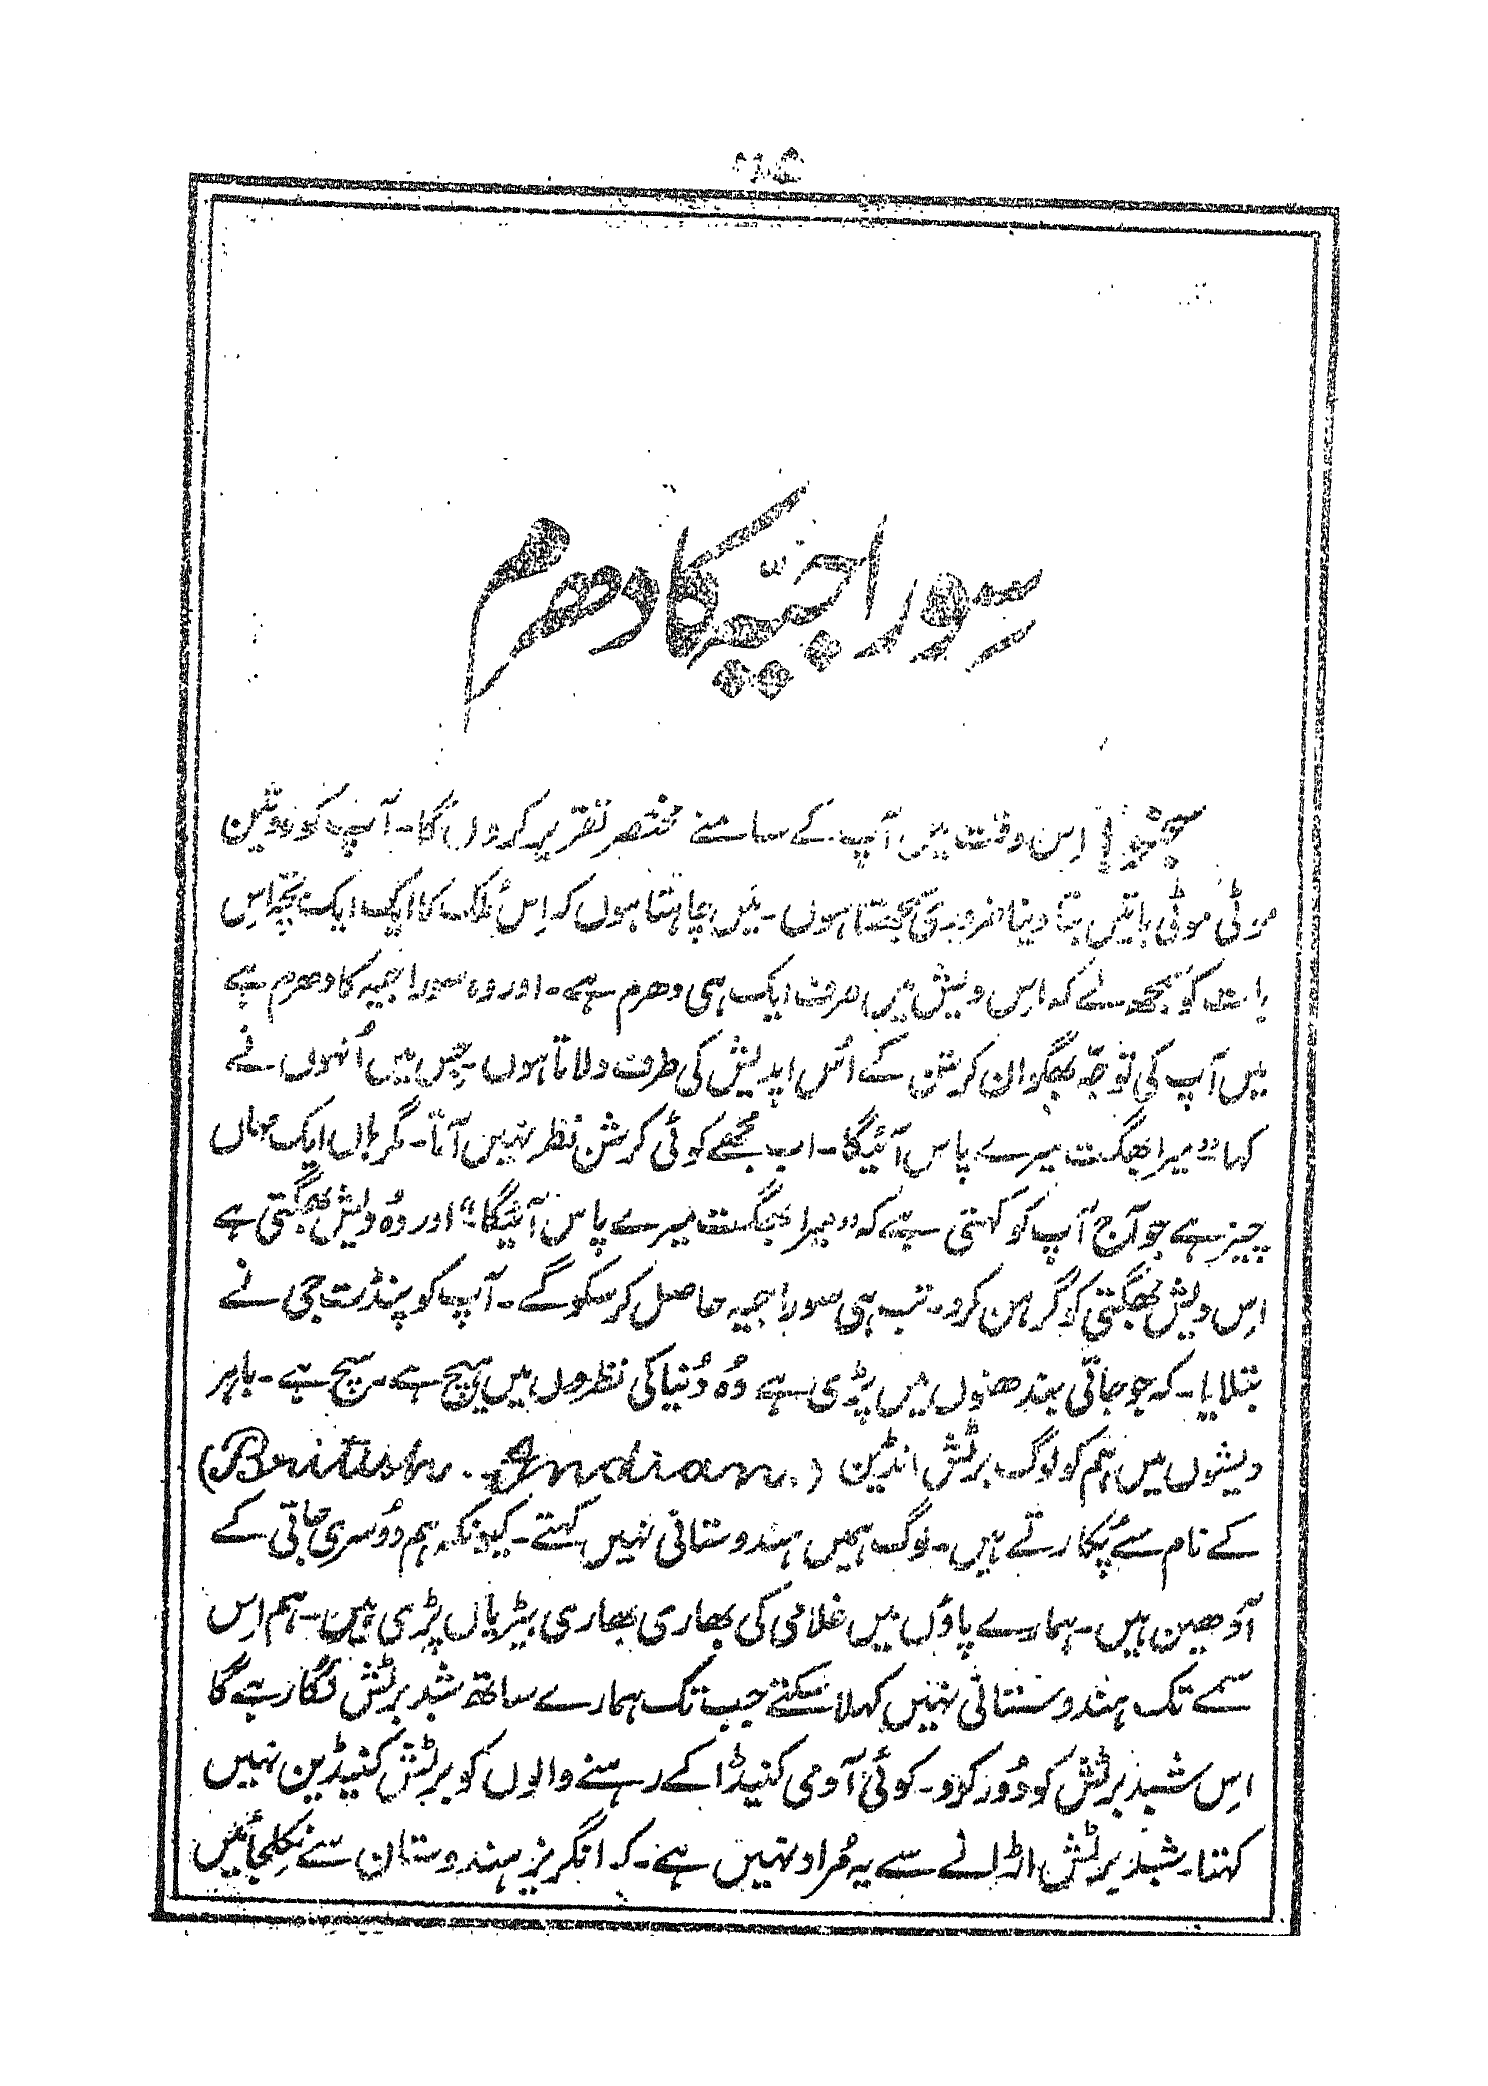 سوراجیہ کا دھرم
سجنو! اِس وقت میں آپ کے سامنے مختصر تقریر کروں گا۔ آپ کو دو تین
موٹی موٹی باتیں بتا دینا ضروری سمجھتا ہوں۔ میں چاہتا ہوں کہ اِس مُلک کا ایک ایک بچّہ اِس
بات کو سمجھ لے کہ اِس دیش میں صرف ایک ہی دھرم ہے۔ اور وہ سوراجیہ کا دھرم ہے
میں آپ کی توجّہ بھگوان کرشن کے اُس اپدیش کی طرف دلاتا ہوں۔ جس میں اُنہوں نے
کہا "میرا بھگت میرے پاس آئیگا۔ اب مجھے کوئی کرشن نظر نہیں آتا۔ مگر ہاں ایک یہاں
چیز ہے جو آج آپ کو کہتی ہے کہ "میرا بھگت میرے پاس آئیگا" اور وُہ دیش بھگتی ہے
اِس دیش بھگتی کو گرہن کرو۔ تب ہی سوراجیہ حاصل کر سکو گے۔ آپ کو پنڈت جی نے
بتلایا۔ کہ جو جاتی بندھنوں میں پڑی ہے وُہ دُنیا کی نظروں میں ہیچ ہے۔ سچ ہے۔ باہر
دیشوں میں ہم کو لوگ برٹش انڈین (British Indian)
کے نام سے پُکارتے ہیں۔ لوگ ہمیں ہندوستانی نہیں کہتے۔ کیونکہ ہم دُوسری جاتی کے
آدھین ہیں۔ ہمارے پاؤں میں غلامی کی بھاری بھاری بیڑیاں پڑی ہیں۔ ہم اِس
سمے تک ہندوستانی نہیں کہلا سکتے جب تک ہمارے ساتھ شبد برٹش لگا رہے گا
اِس شبد برٹش کو دُور کرو۔ کوئی آدمی کنیڈا کے رہنے والوں کو برٹش کنیڈین نہیں
کہتا۔ شبد برٹش اڑانے سے یہ مُراد نہیں ہے۔ کہ انگریز ہندوستان سے نِکل جائیں